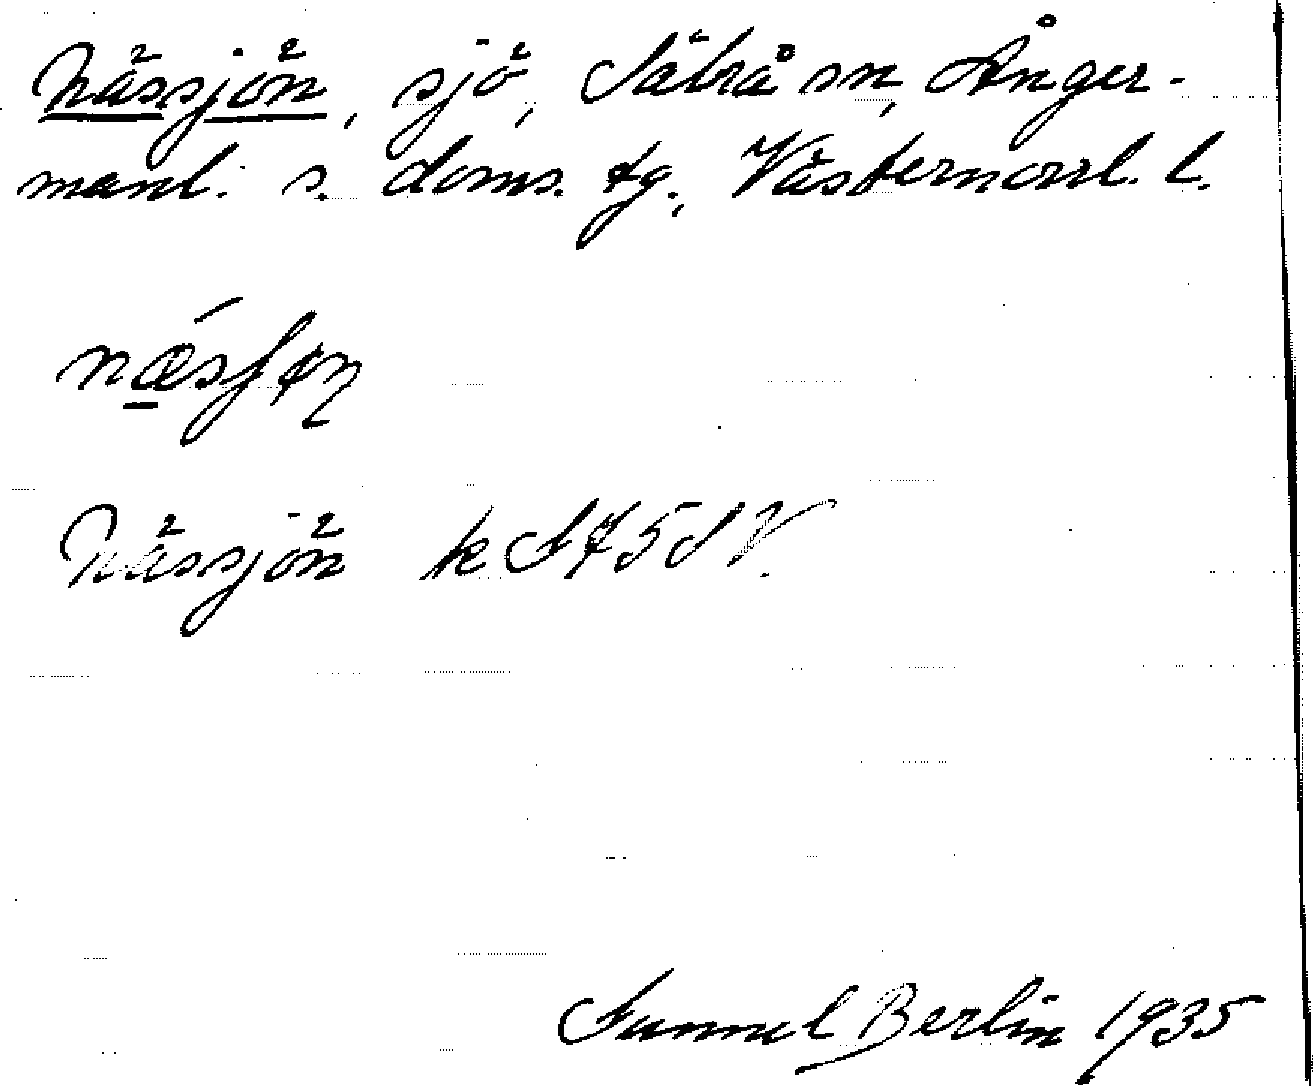 Nässjön, sjö, Säbrå sn, Ånger-
manl. s. doms. tg., Västernorrl. l.
Nässjön k S 75 SV.
Sunnel Berlin 1935